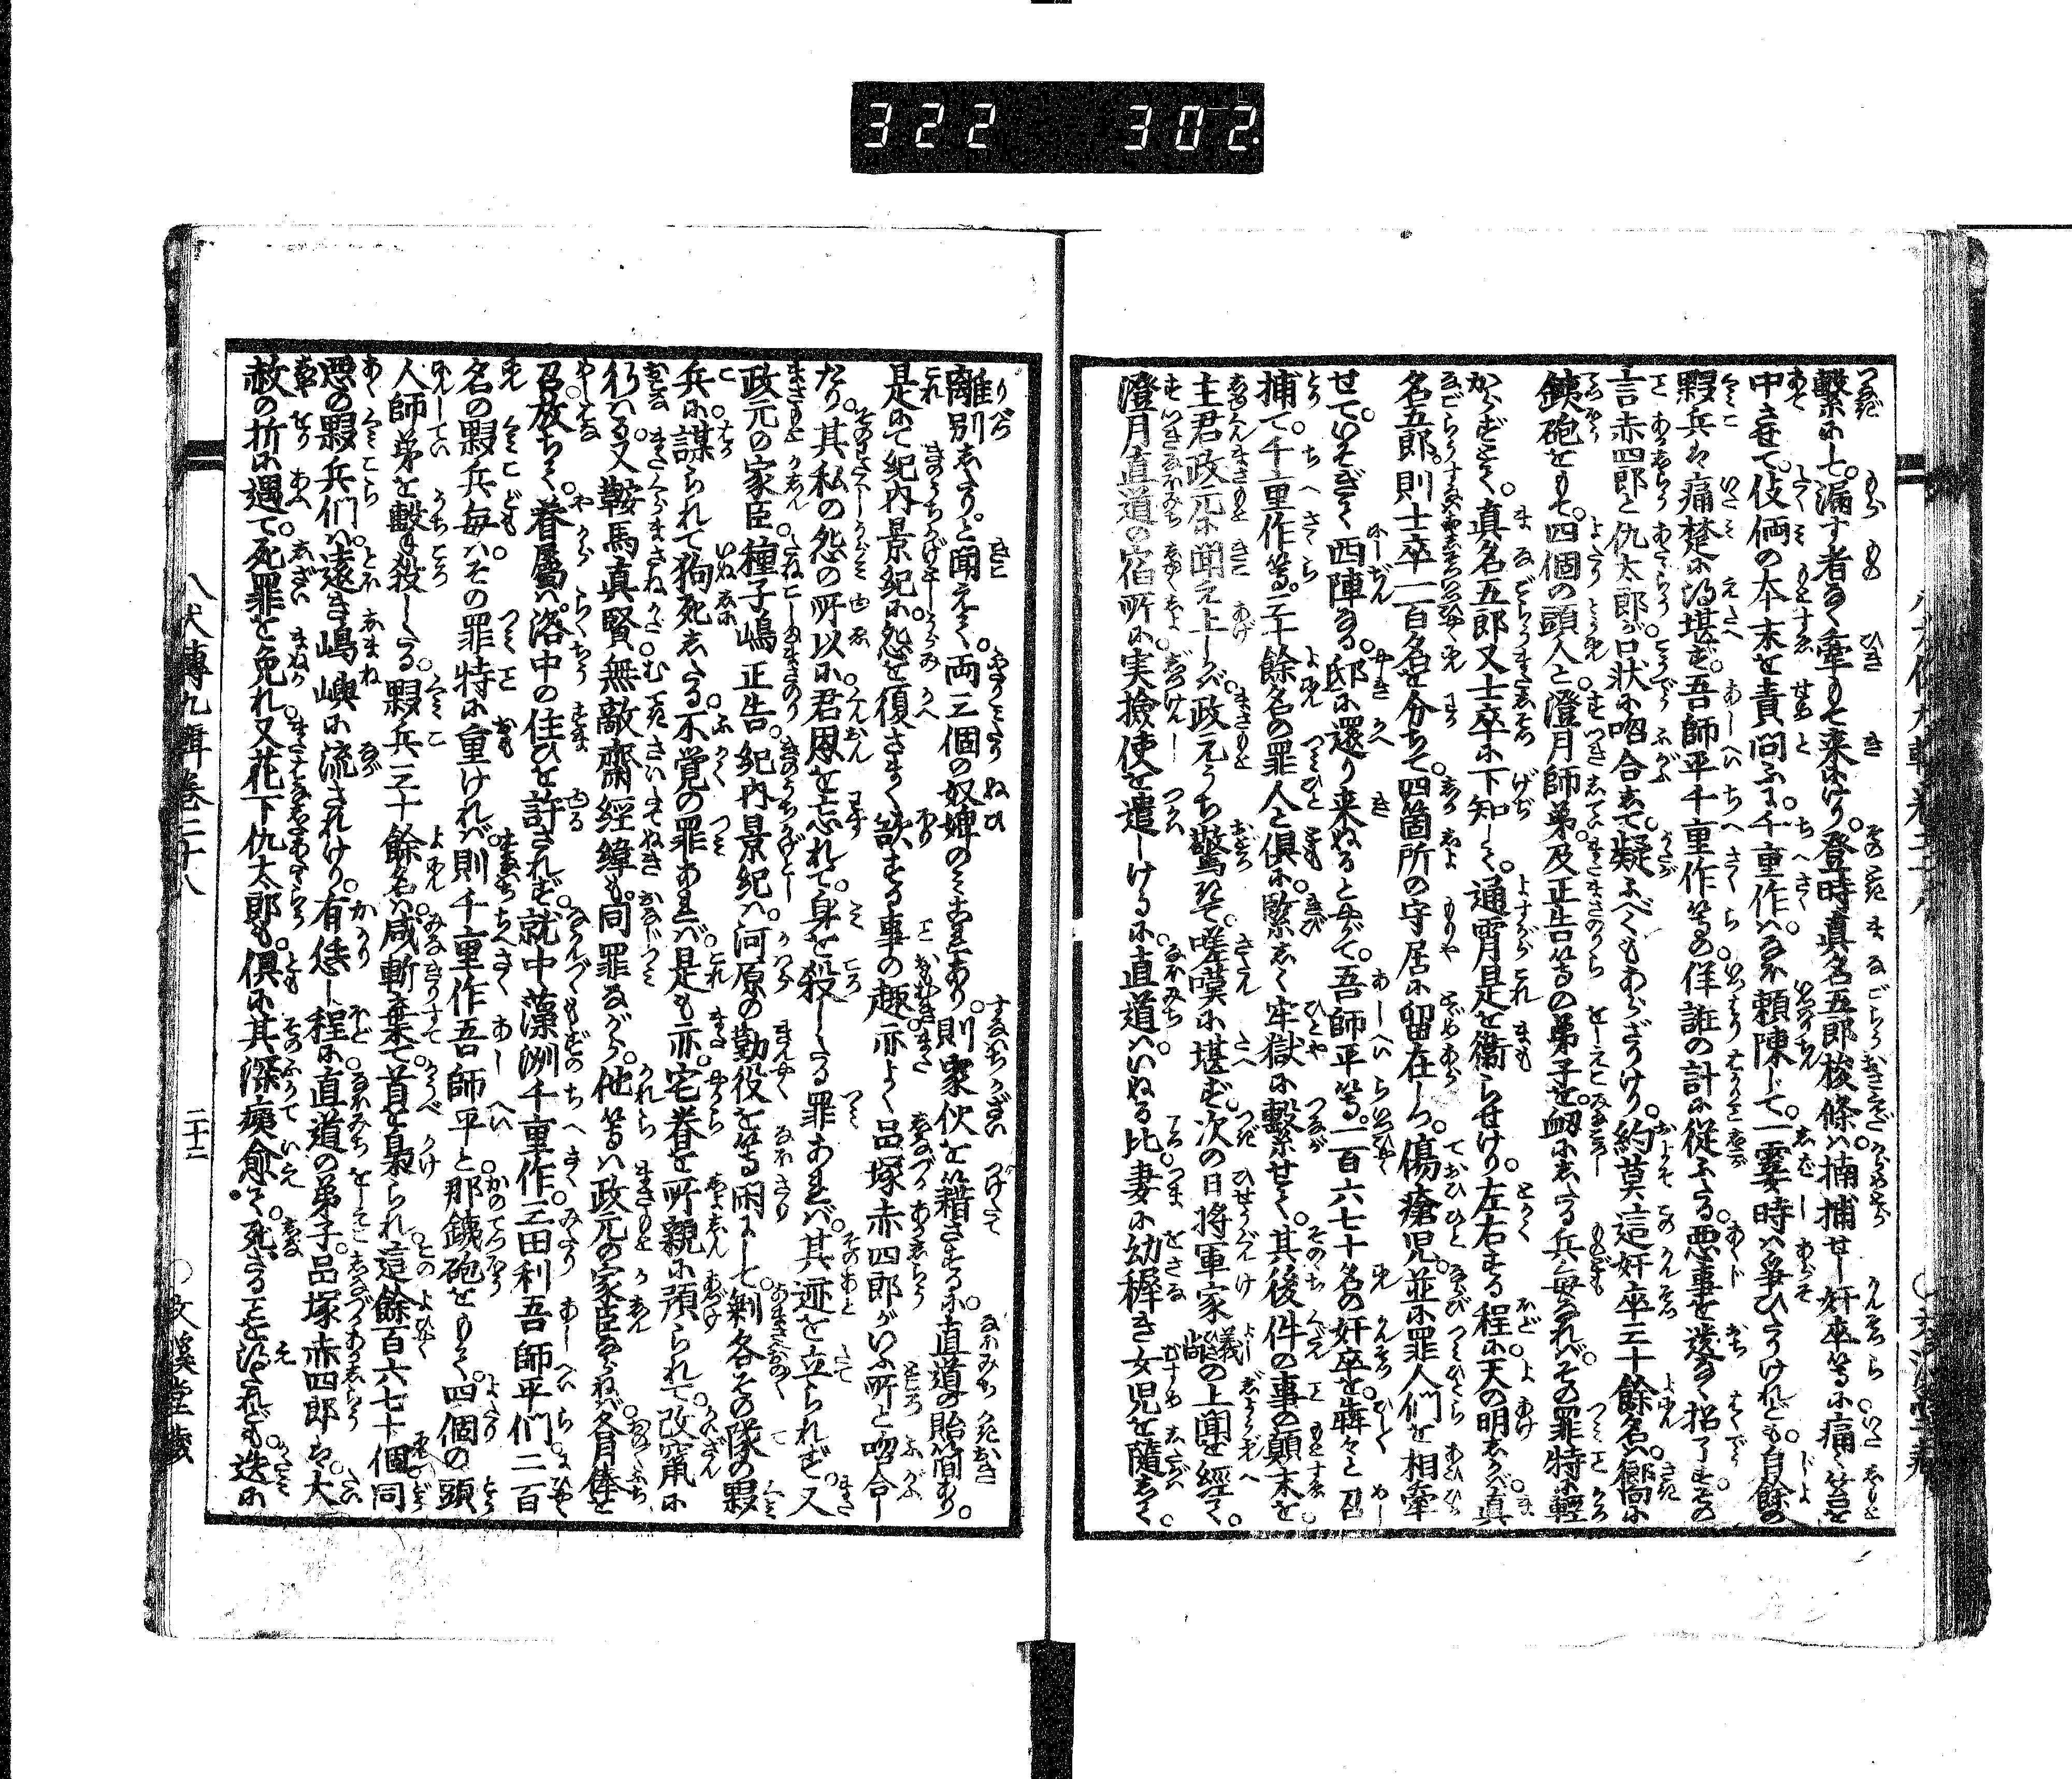 322 302
繋ぎに七。漏す者なく牽もて来にけり。登時真名五郎梭條ハ。搦捕せし奸卒等に痛く笞を
中させて。伎倆の本末を責問ふに。千重作ハなほ頼陳じて。一霎時ハ争ひたりけれども。自餘の
夥兵は痛楚に得堪ず。吾師平千重作等の佯誑の計に従ふたる。悪事を送なく招了す。その
言赤四郎と仇太郎が口状に吻合して。疑ふべくもあらざりけり。約莫這奸卒三十餘名ハ。嚮向に
銕砲をもて。四個の頭人と。澄月師弟。及正告等の弟子を。衂にしたる兵毎なれバ。その罪特に輕
からずとて。真名五郎又士卒に下知して。通宵是を衛らせけり。左右する程に天の明しかバ。真
名五郎。則士卒一百名を分ちて。四箇所の守居に留在しつ。傷瘡児並に罪人們を相牽
せて。いそぎて西陣なる。邸に還り来ぬると母がて。吾師平等。一百六七十名の奸卒を。犇々と召
捕て。千重作等。三十餘名の罪人と倶に。緊しく牢獄に繋せて。其後件の事の顛末を
主君政元に聞え上しかバ。政元うち驚きて。嗟嘆に堪ず。次の日将軍家 義尚 の上聞を經て。
澄月直道の宿所に。実撿使を遣しけるに。直道ハいぬる比。妻に幼稺き女児を隨して。
離別したりと聞えて。両三個の奴婢のミ在りあり。則家伙を籍さするに。直道の貽簡あり。
是にて紀内景紀に。怨を復さまく欲する事の趣。亦よく品塚赤四郎がいふ所と吻合し
たり。其私の怨の所以に。君恩を忘れて。身を殺したる罪あれバ。其迹を立られず。又
政元の家臣。種子嶋正告。紀内景紀ハ。河原の勤役を等閑にして。剰各その隊の夥
兵に謀られて狗死したる。不覚の罪あれバ。是も亦。宅眷を所親に預られて。改竄に
行ハる。又鞍馬真賢無敵齋經緯も。同罪ながら。他等ハ政元の家臣ならねバ。各月俸を
召放ちて。眷属ハ。洛中の住ひを許されず。就中藻洌千重作。三田利吾師平們二百
名の夥兵毎ハその罪特に重けれバ。則千重作吾師平と那銕砲をもて。四個の頭
人師弟を轂殺したる。夥兵三十餘名ハ。咸斬棄て。首を梟られ。這餘百六七十個同
悪の夥兵們ハ。遠き嶋嶼に流されけり。有恁し程に直道の弟子。品塚赤四郎は。大
赦の折に遇て。死罪を免れ。又花下仇太郎も。倶に其深痍愈て。死ざることを得たれども。迭に
八犬傳九輯卷三十八 二十二 ○文溪堂藏